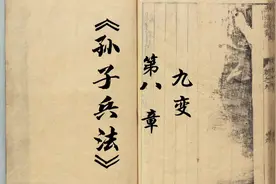 《孙子兵法》
第八章
九变